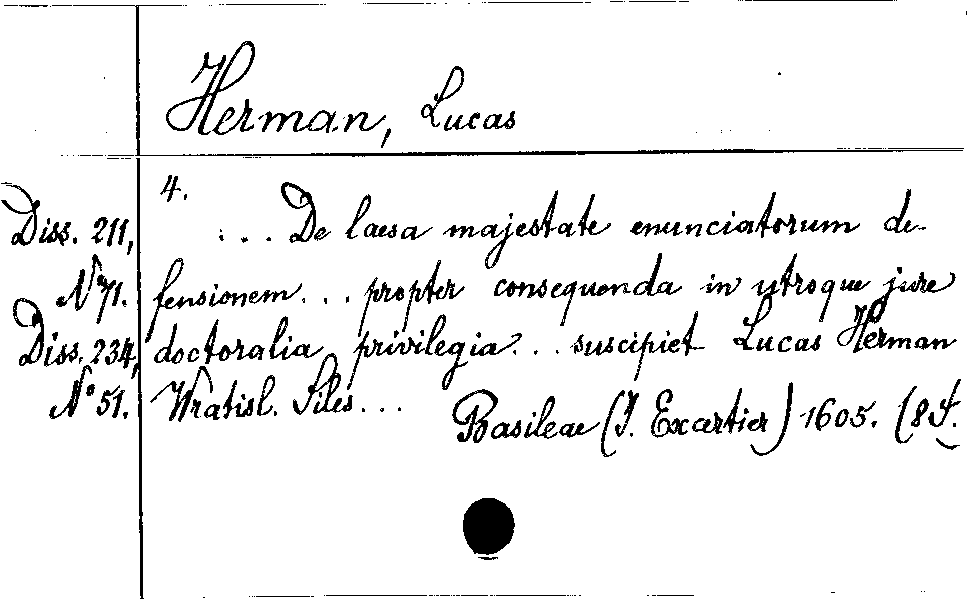 Herman, Lucas
4.
Diss. 211, ... De laesa majestate enunciatorum de-
N° 71. fensionem ... propter consequenda in utroque jure
Diss. 234, doctoralia privilegia ... suscipiet Lucas Herman
N° 51. Wratisl. Siles ...
Basileae (J. Excartier) 1605. (8 S.